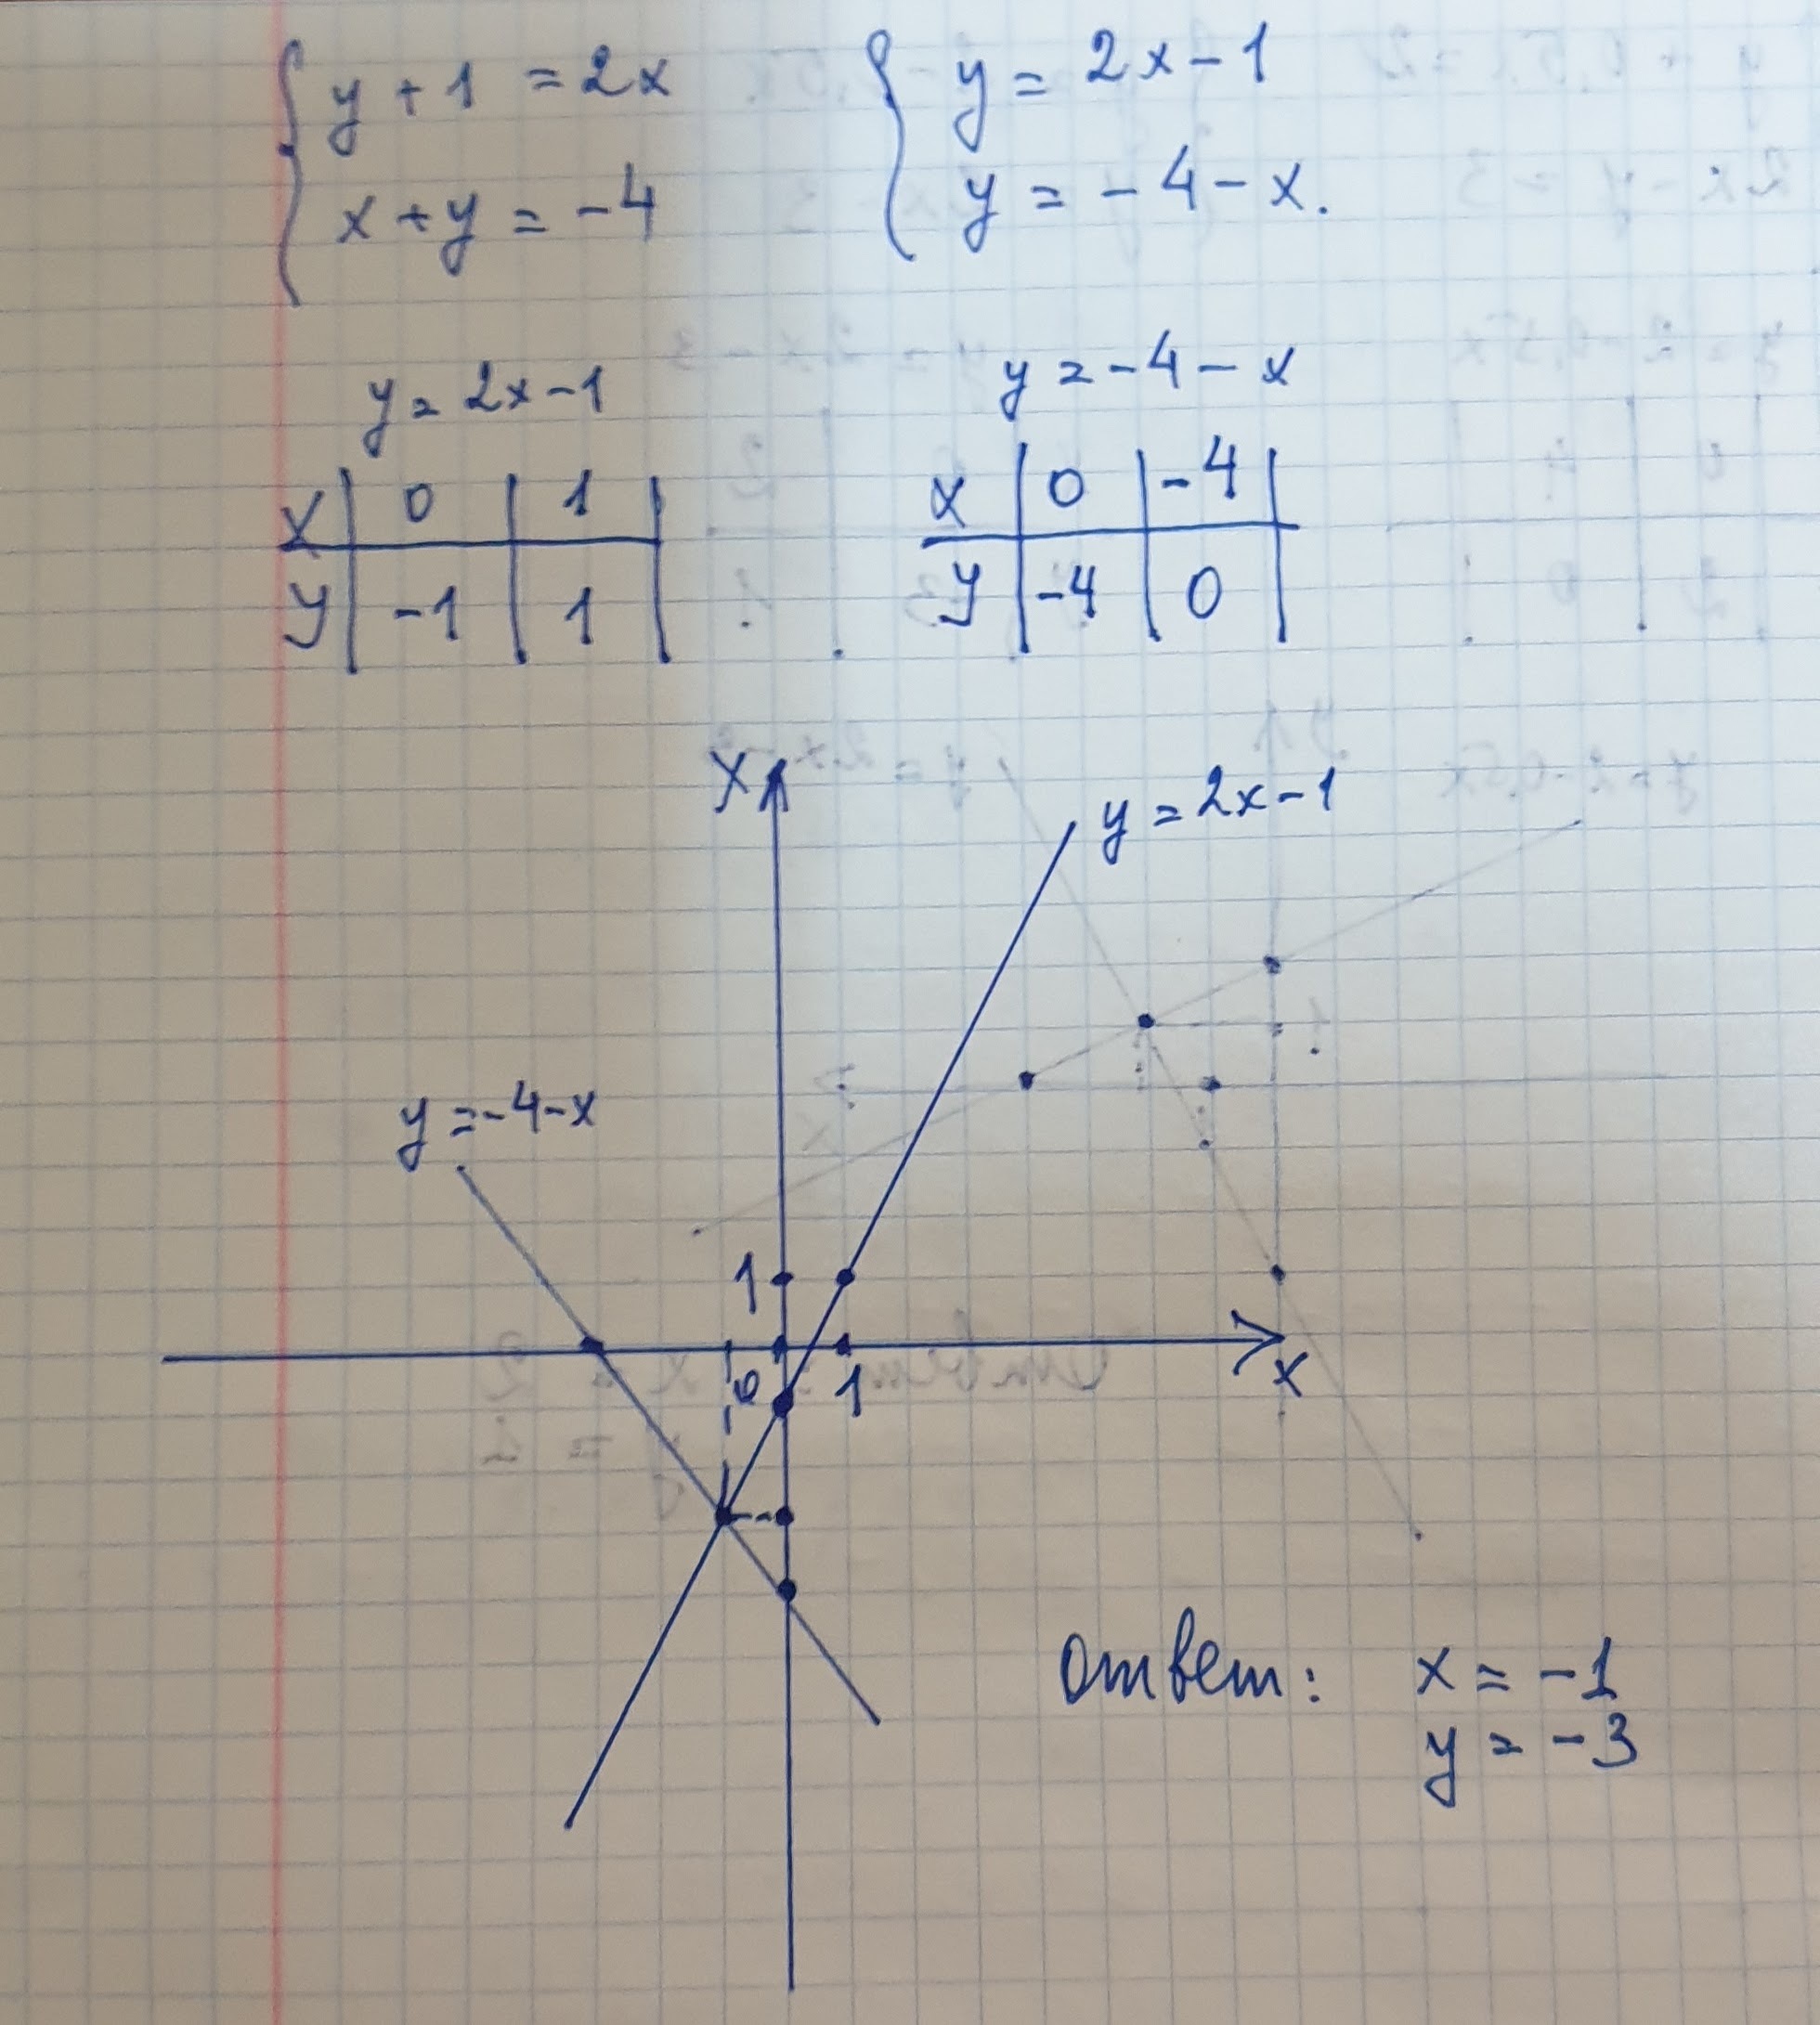 y + 1 = 2x
x + y = -4
y = 2x - 1
y = -4 - x.
y = 2x - 1
x 0 1
y -1 1
y = -4 - x
x 0 -4
y -4 0
X
y = 2x - 1
y = -4 - x
1
0 1
x
Ответ: x = -1
y = -3